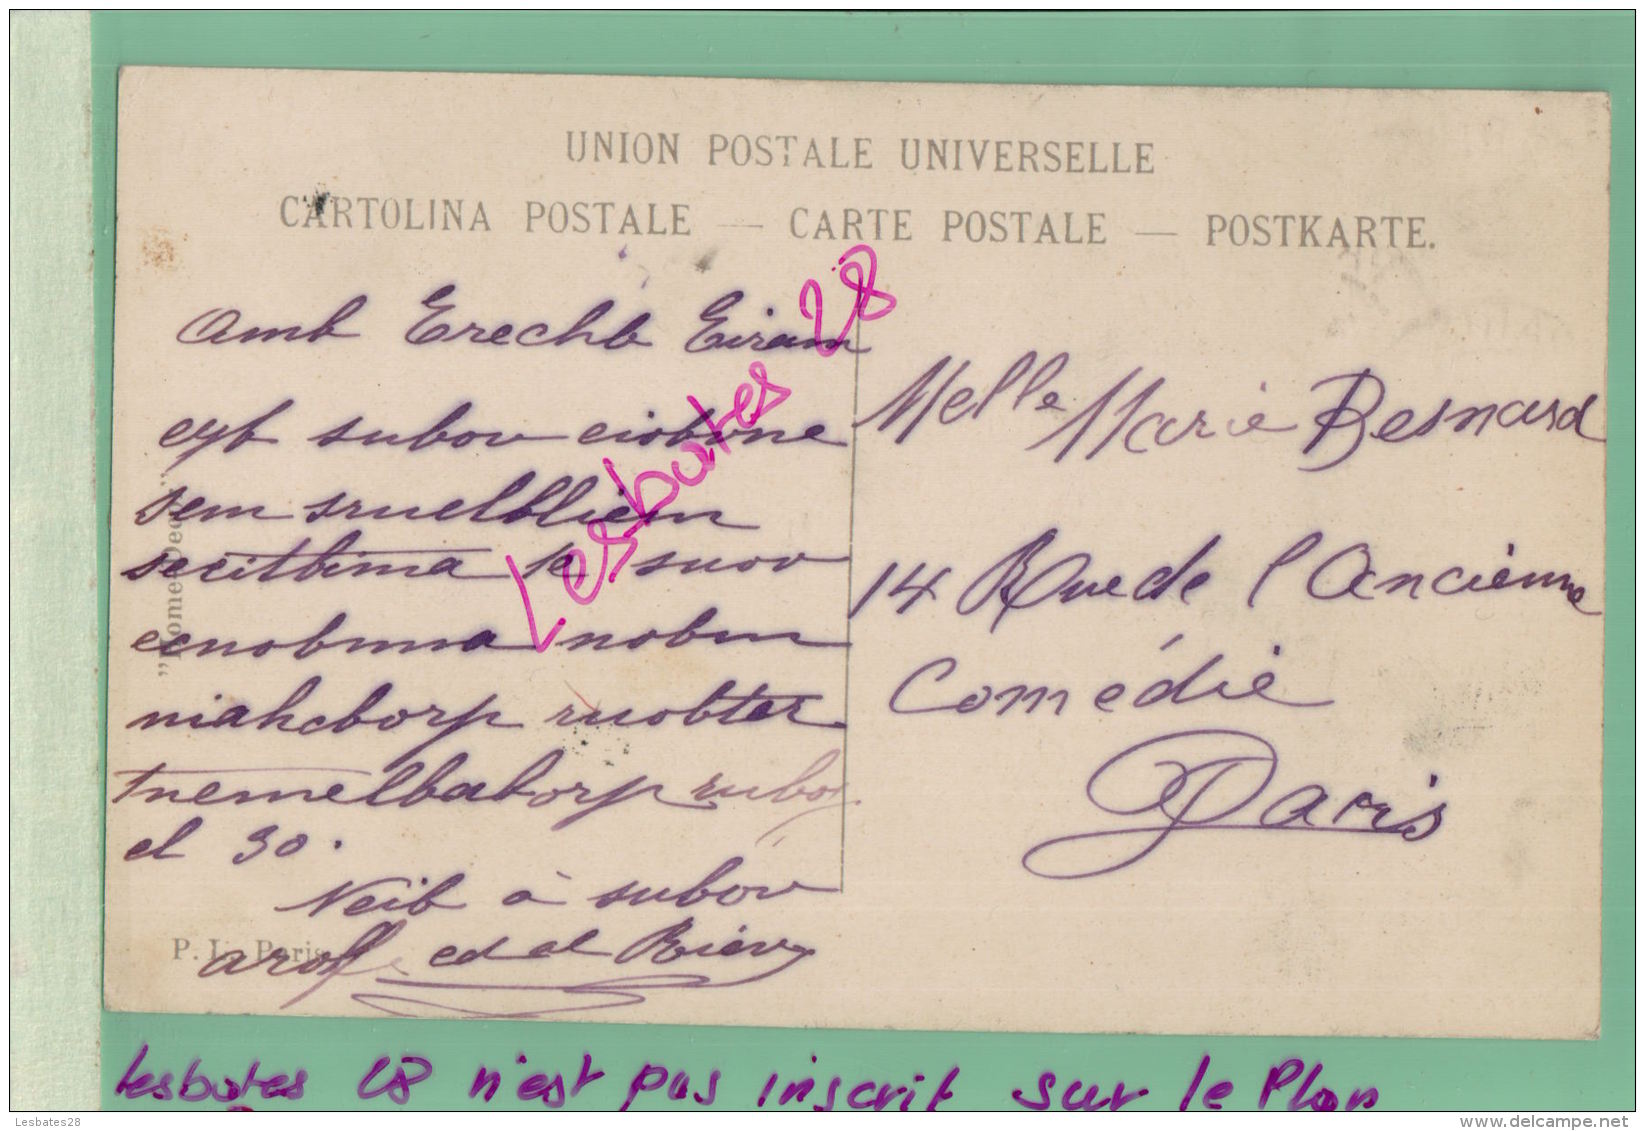 UNION POSTALE UNIVERSELLE
CARTOLINA POSTALE — CARTE POSTALE — POSTKARTE.
Amb Erechb Eiram
eyb subov eiobvne
sem sruellliem
secitbima te suov
ecnobnna nobm
niahcborp ruobter
tnemelbaborp rubop
el 30.
Neib à subov
arof ed al Rierv
Melle Marie Besnard
14 Rue de l'Ancienne
Comédie
Paris
"Home Dec
P. L. Paris
Lesbates 28
Lesbates 28 n'est pas inscrit sur le Plan
Lesbates28
www.delcampe.net